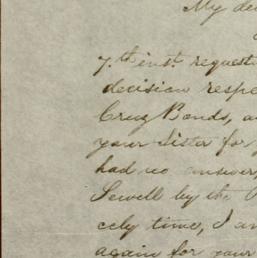 My de
7.th inst. request
decision respe
Cruz Bonds, a
your Sister fo
had no answer,
Sewell by the
cely time, I a
again for your